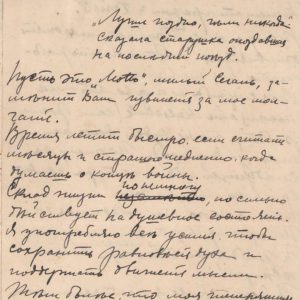 „Лучше поздно, чем никогда"
сказала старушка опоздавшая
на последний поезд.
Пусть это „Motto", милый Сегань, за-
менит Вам приветы за мое мол-
чание.
Время летит быстро, если считать
месяцы и страшно медленно, когда
думаешь о конце войны.
Склад жизни по немногу но сильно
действует на душевное состояние.
Я употребляю все усилия, чтобы
сохранить равновесие духа и
поддержать ясность мысли.
что моя